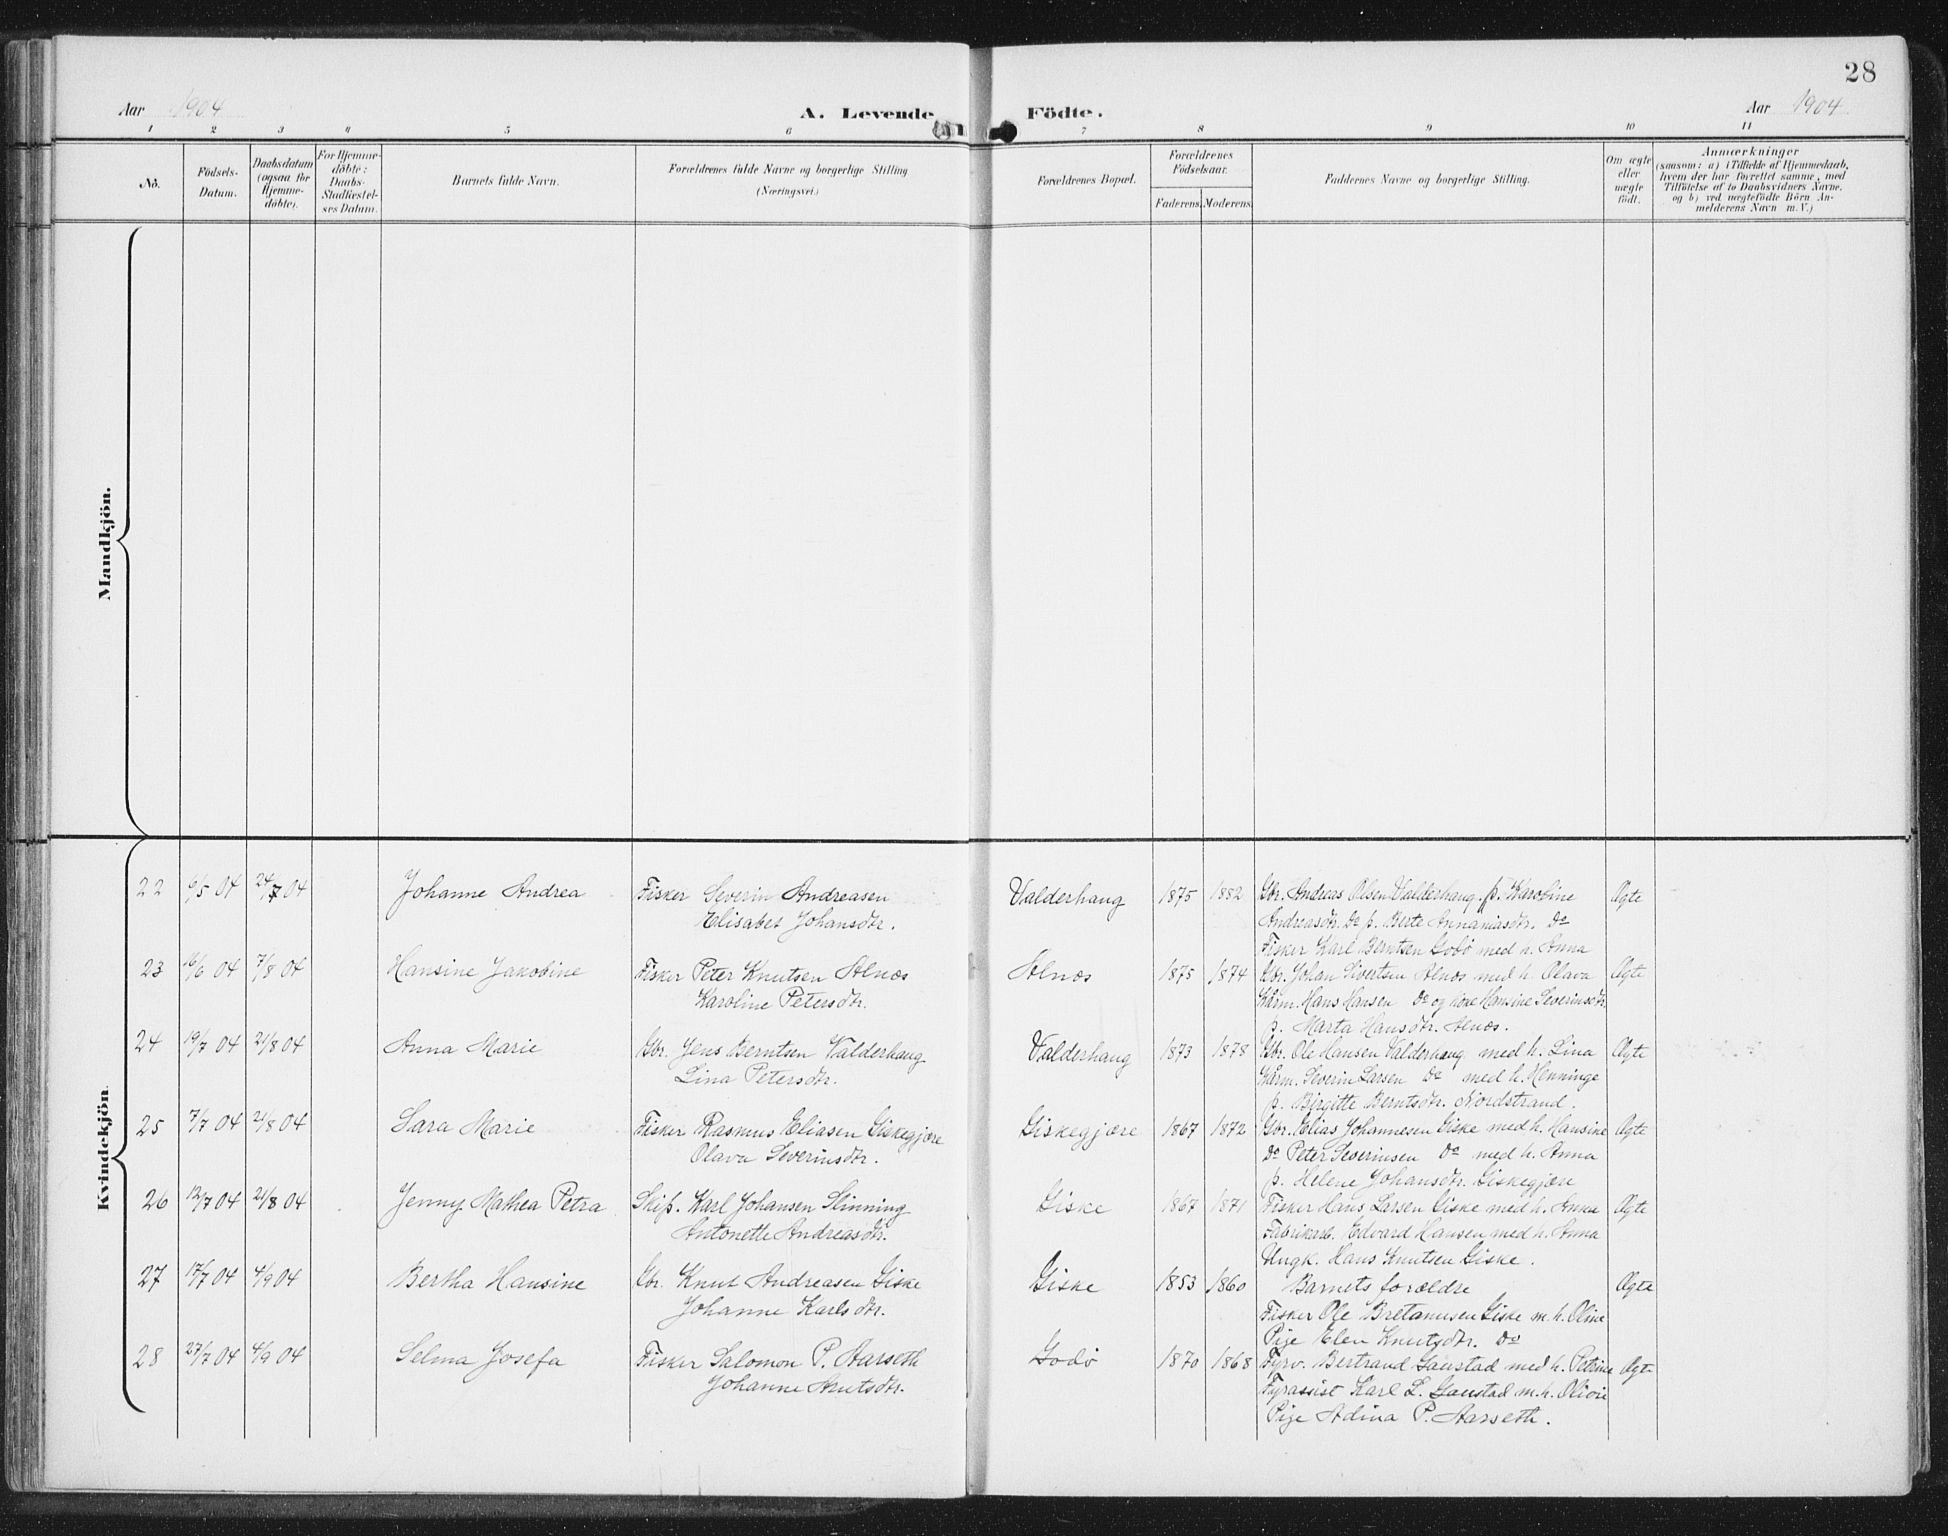 28
Aar 1904 A. Levende Födte. Aar 1904
1 2 3 4 5 6 7 8 9 10 11
No.
Födsels-
Datum.
Daabsdatum
(ogsaa for
Hjemme-
döbte).
For Hjemme-
döbte:
Daabs-
Stadfæstel-
ses Datum.
Barnets fulde Navn.
Forældrenes fulde Navne og borgerlige Stilling
(Næringsvei.)
Forældrenes Bopæl.
Forældrenes
Födselsaar.
Faderens. Moderens.
Faddernes Navne og borgerlige Stilling.
Om ægte
eller
uægte
födt.
Anmærkninger
(saasom: a) i Tilfælde af Hjemmedaab,
hvem der har forrettet samme, med
Tilföielse af to Daabsvidners Navne.
og b) ved uægtefödte Börn An-
melderens Navn m. V.)
Mandkjön.
Kvindekjön.
22 6/5 04 24/7 04 Johanne Andrea Fisker Severin Andreasen Valderhaug 1875 1882 Gbr. Andreas Olsen Valderhaug. p. Karoline Ægte
Elisabet Johansdtr. Andreasdtr. Do p. Berte Annaniasdtr. Do
Fisker Karl Berntsen Godö med h. Anna
23 16/6 04 7/8 04 Hansine Jakobine Fisker Peter Knutsen Alnæs Alnæs 1875 1874 Gbr. Johan Sivertsen Alnæs med h. Olava Ægte
Karoline Petersdtr. Kårm. Hans Hansen Do og kone Hansine Severinsdtr.
p. Marta Hansdtr. Alnæs.
24 19/7 04 21/8 04 Anna Marie Gbr. Jens Berntsen Valderhaug Valderhaug 1873 1878 Gbr. Ole Hansen Valderhaug med h. Lina Ægte
Lina Petersdtr. Kårm. Severin Larsen Do med h. Henninge
p. Birgitte Berntsdtr. Nordstrand.
25 7/7 04 21/8 04 Sara Marie Fisker Rasmus Eliasen Giskegjære Giskegjære 1867 1872 Gbr. Elias Johannesen Giske med h. Hansine Ægte
Olava Severinsdtr. Do Peter Severinsen Do med h. Anna
p. Helene Johansdtr. Giskegjære
26 12/7 04 21/8 04 Jenny Mathea Petra Skip. Karl Johansen Slinning Giske 1867 1871 Fisker Hans Larsen Giske med h. Anna Ægte
Antonette Andreasdtr. Fabrikarb. Edvard Hansen med h. Anna
Ungk. Hans Knutsen Giske.
27 17/7 04 4/9 04 Bertha Hansine Gbr. Knut Andreasen Giske Giske 1853 1860 Barnets forældre Ægte
Johanne Karlsdtr. Fisker Ole Bretanusen Giske m. h. Oline
Pige Elen Knutsdtr. Do
28 27/7 04 4/9 04 Selma Josefa Fisker Salomon P. Aarseth Godö 1870 1868 Fyrv. Bertrand Gaustad med h. Petrine Ægte
Johanne Knutsdtr. Fyrassist Karl L. Gaustad m. h. Olivie
Pige Adina P. Aarseth.